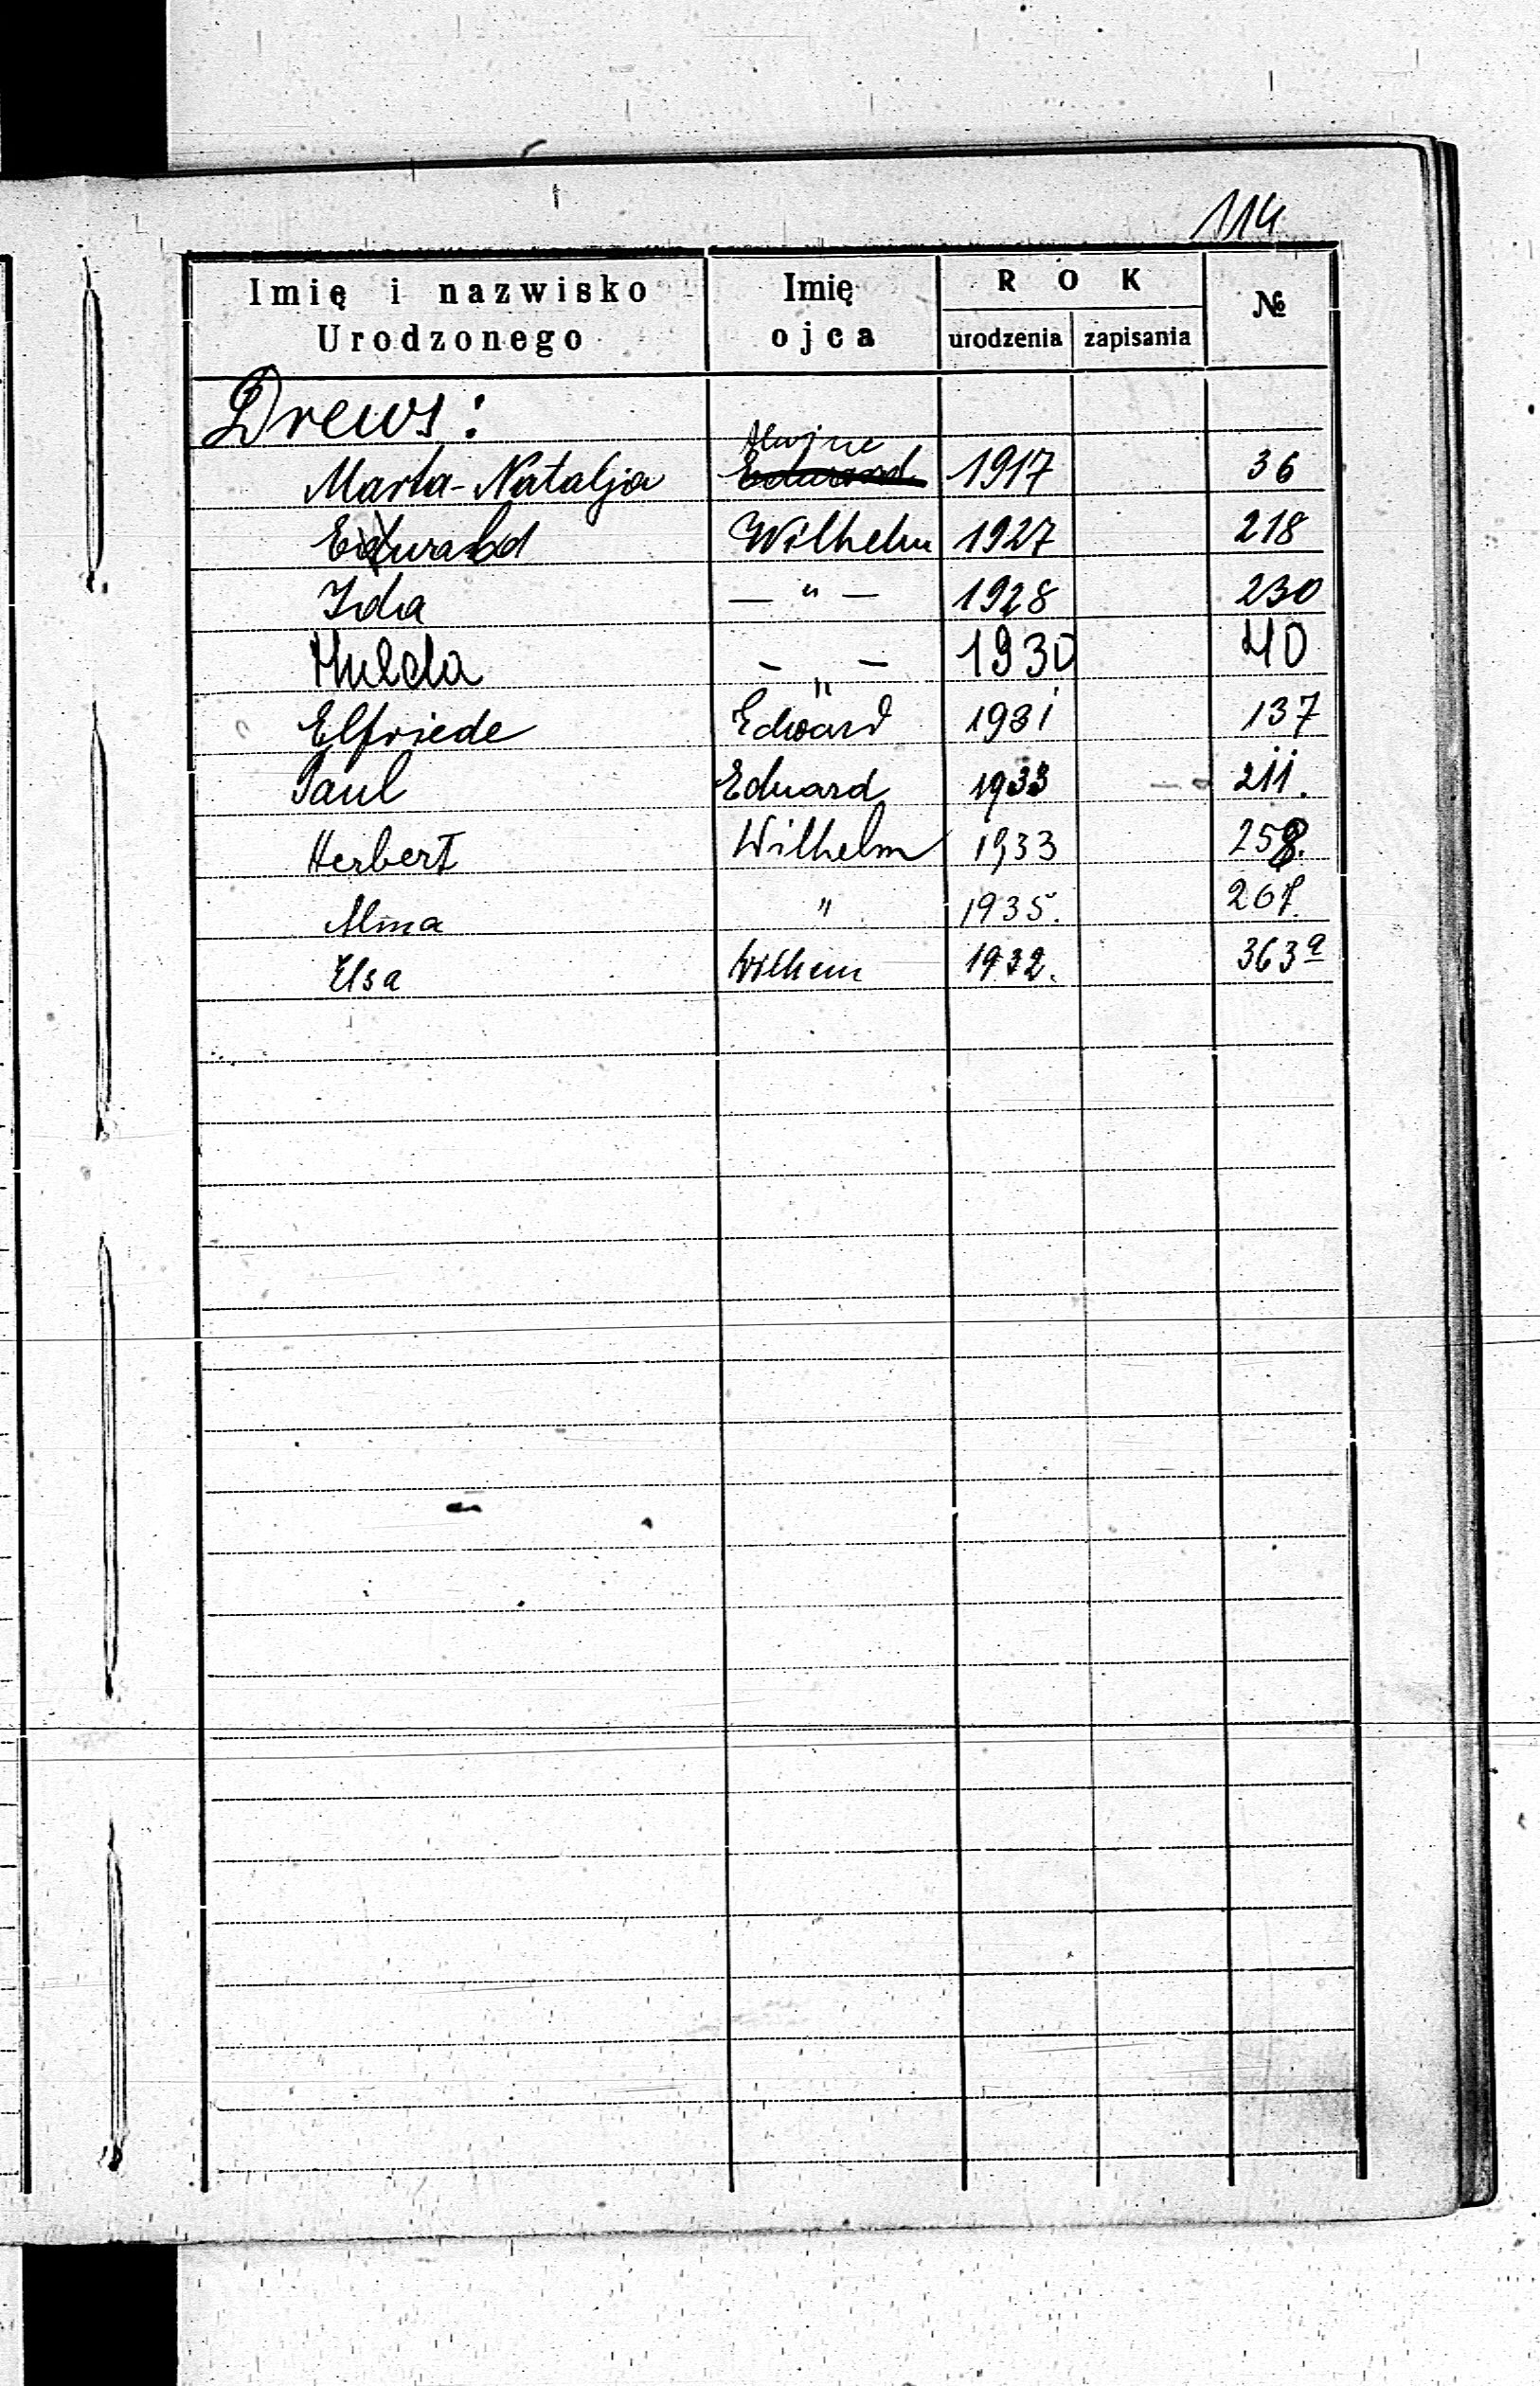 114
Imię i nazwisko Urodzonego Imię ojca ROK urodzenia zapisania №
Drews:
Alwine
Marta-Natalja Eduard 1917 36
Wilhelm 1927 218
Ida — " — 1928 230
Hulda — " — 1930 40
Elfriede Edward 1931 137
Paul Eduard 1933 211.
Herbert Wilhelm 1933 258.
Alma " 1935. 267.
Elsa Wilhem 1932. 363a